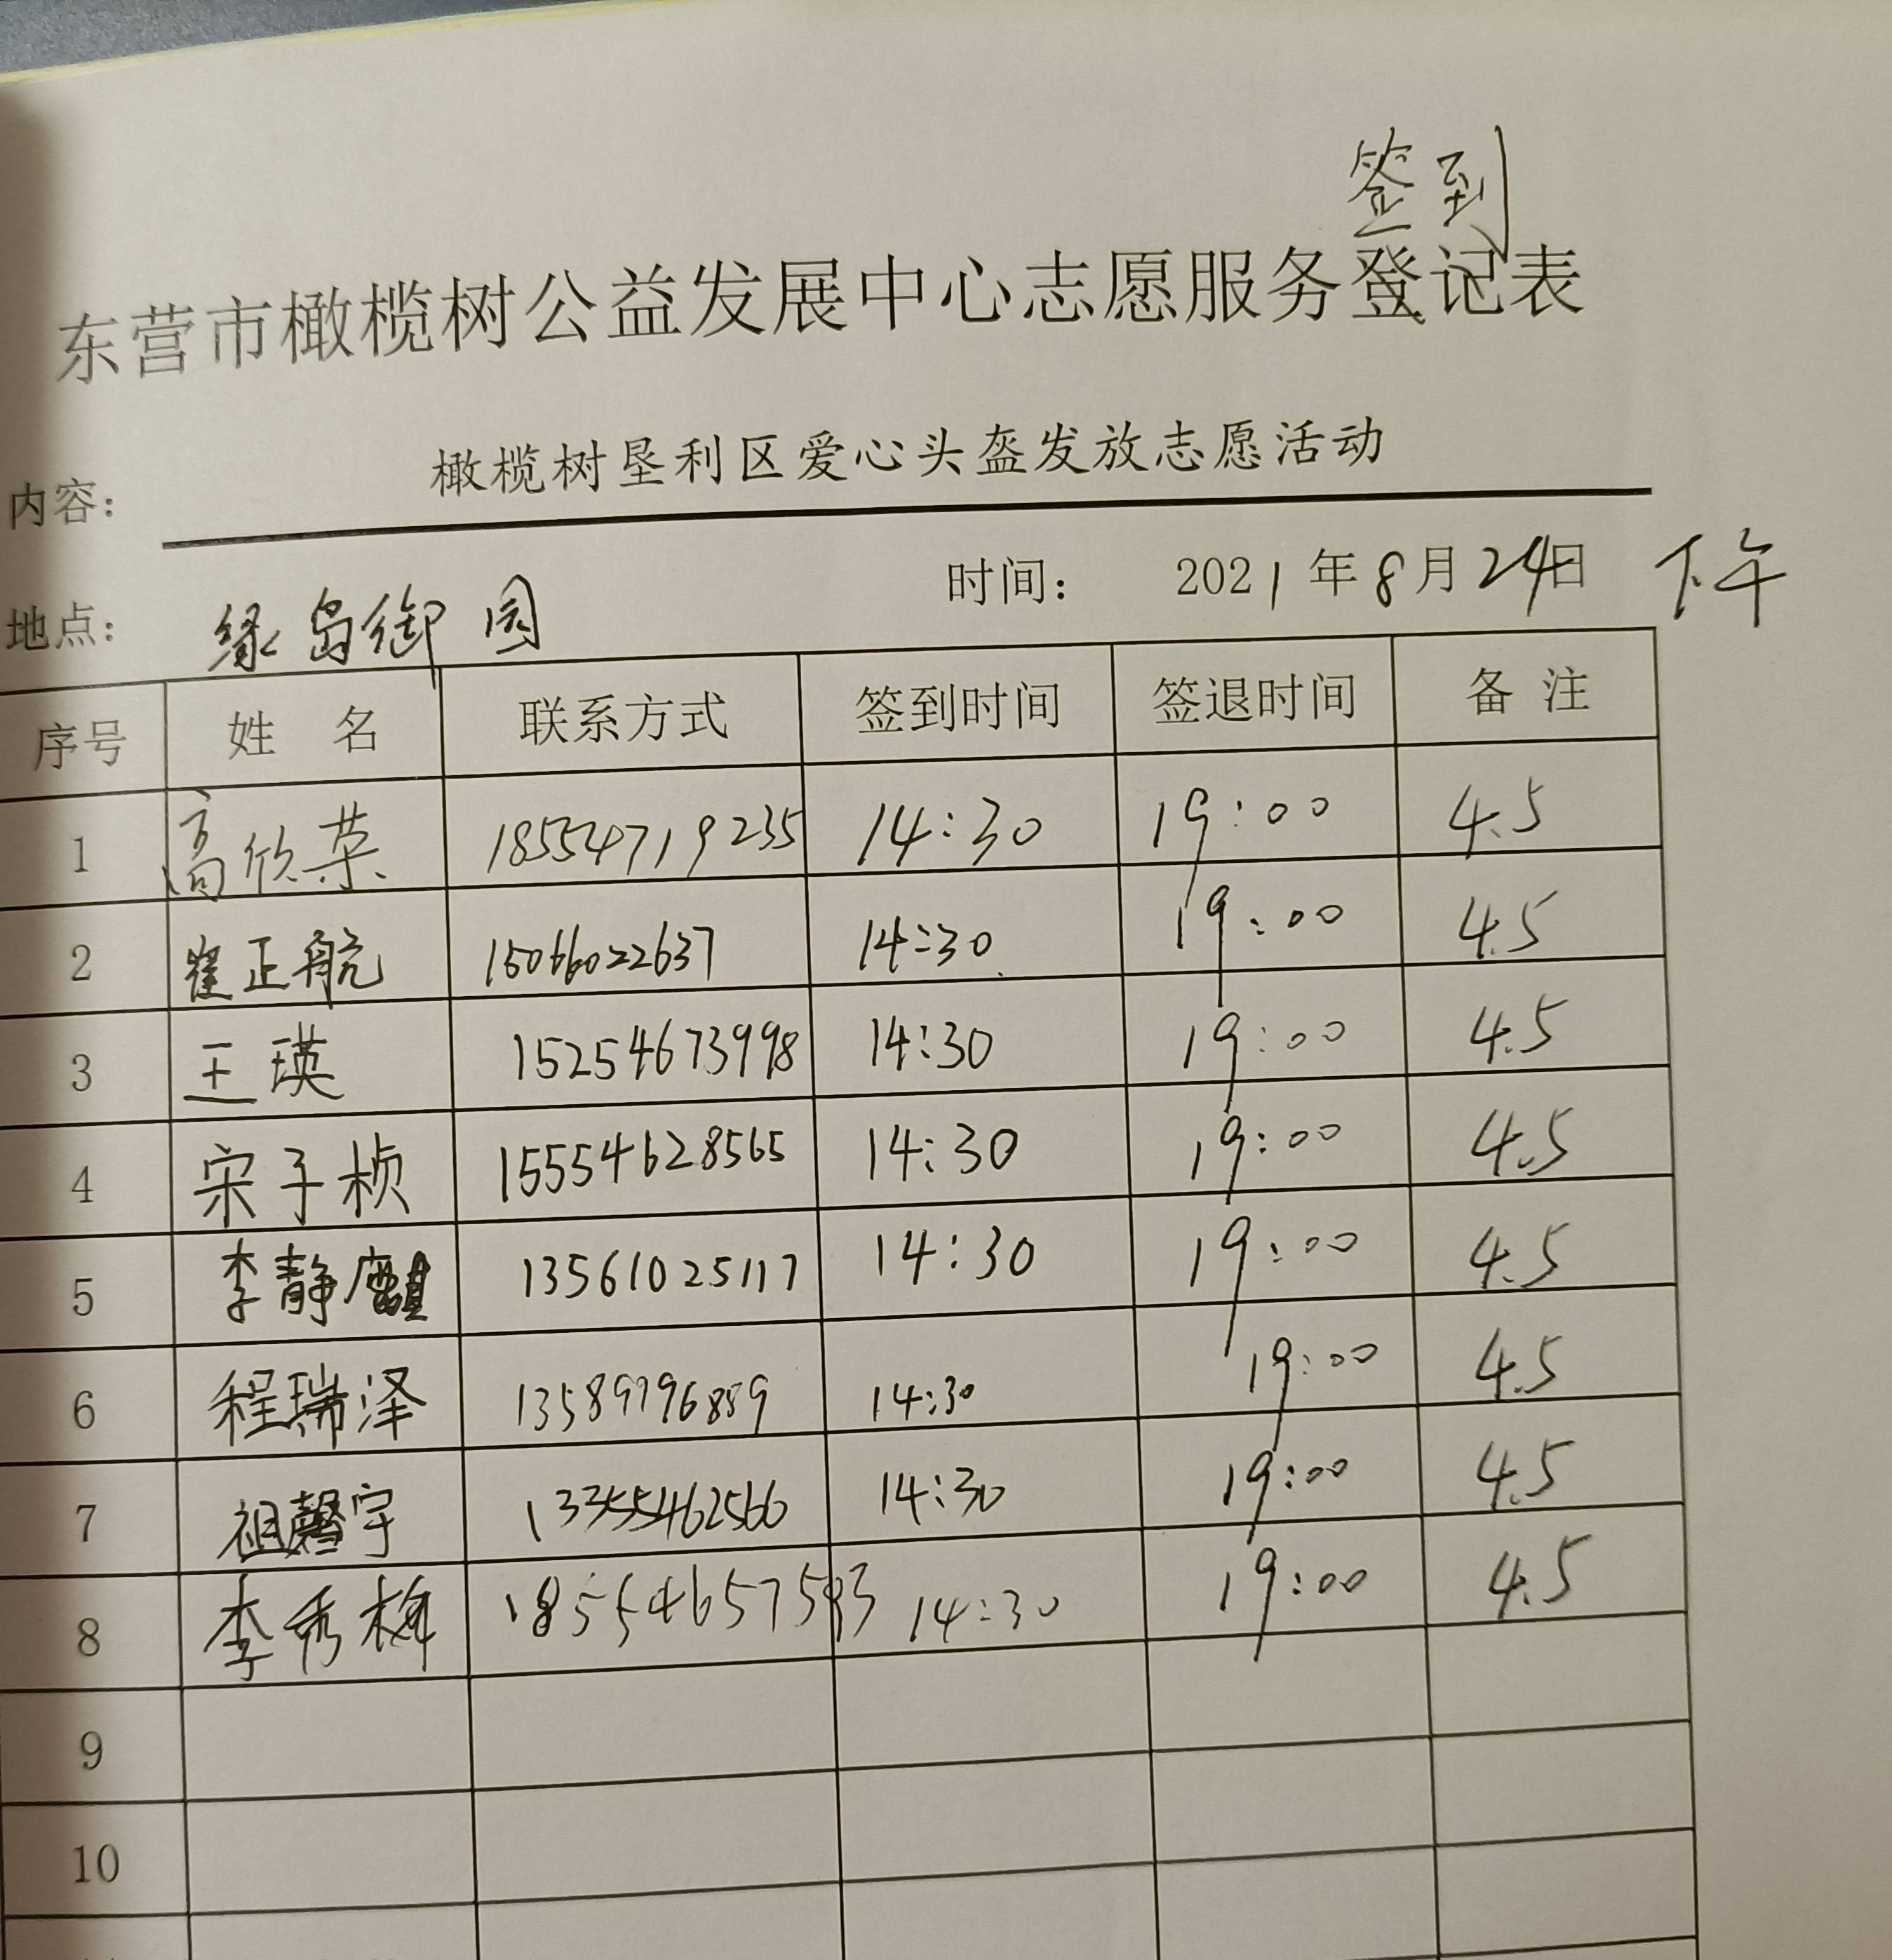 签到
东营市橄榄树公益发展中心志愿服务登记表
内容： 橄榄树垦利区爱心头盔发放志愿活动
地点： 绿岛御园 时间： 2021年8月24日 下午
序号 姓 名 联系方式 签到时间 签退时间 备 注
1 高欣荣 18554719235 14:30 19:00 4.5
2 崔正航 15066022637 14:30 19:00 4.5
3 王瑛 15254673998 14:30 19:00 4.5
4 宋子桢 15554628565 14:30 19:00 4.5
5 李静 13561025117 14:30 19:00 4.5
6 程瑞泽 13589796889 14:30 19:00 4.5
7 祖馨宇 13355462566 14:30 19:00 4.5
8 李秀梅 18554657593 14:30 19:00 4.5
9
10